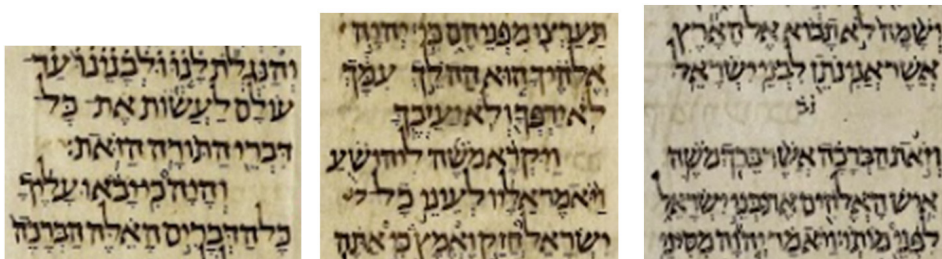 וְהַנִּגְלֹת לָנוּ וּלְבָנֵינוּ עַד
עוֹלָם לַעֲשׂוֹת אֶת כָּל
דִּבְרֵי הַתּוֹרָה הַזֹּאת׃
וְהָיָה כִי יָבֹאוּ עָלֶיךָ
כָּל הַדְּבָרִים הָאֵלֶּה הַבְּרָכָה
תַּעַרְצוּ מִפְּנֵיהֶם כִּי יְהוָה
אֱלֹהֶיךָ הוּא הַהֹלֵךְ עִמָּךְ
לֹא יַרְפְּךָ וְלֹא יַעַזְבֶךָּ
וַיִּקְרָא מֹשֶׁה לִיהוֹשֻׁעַ
וַיֹּאמֶר אֵלָיו לְעֵינֵי כָל
יִשְׂרָאֵל חֲזַק וֶאֱמָץ כִּי אַתָּה
וְשָׁמָּה לֹא תָבוֹא אֶל הָאָרֶץ
אֲשֶׁר אֲנִי נֹתֵן לִבְנֵי יִשְׂרָאֵל
וְזֹאת הַבְּרָכָה אֲשֶׁר בֵּרַךְ מֹשֶׁה
אִישׁ הָאֱלֹהִים אֶת בְּנֵי יִשְׂרָאֵל
לִפְנֵי מוֹתוֹ וַיֹּאמַר יְהוָה מִסִּינַי